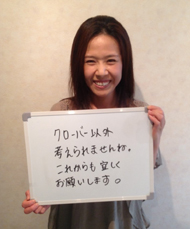 クローバー以外
考えられませんね。
これからも宜しく
お願いします。